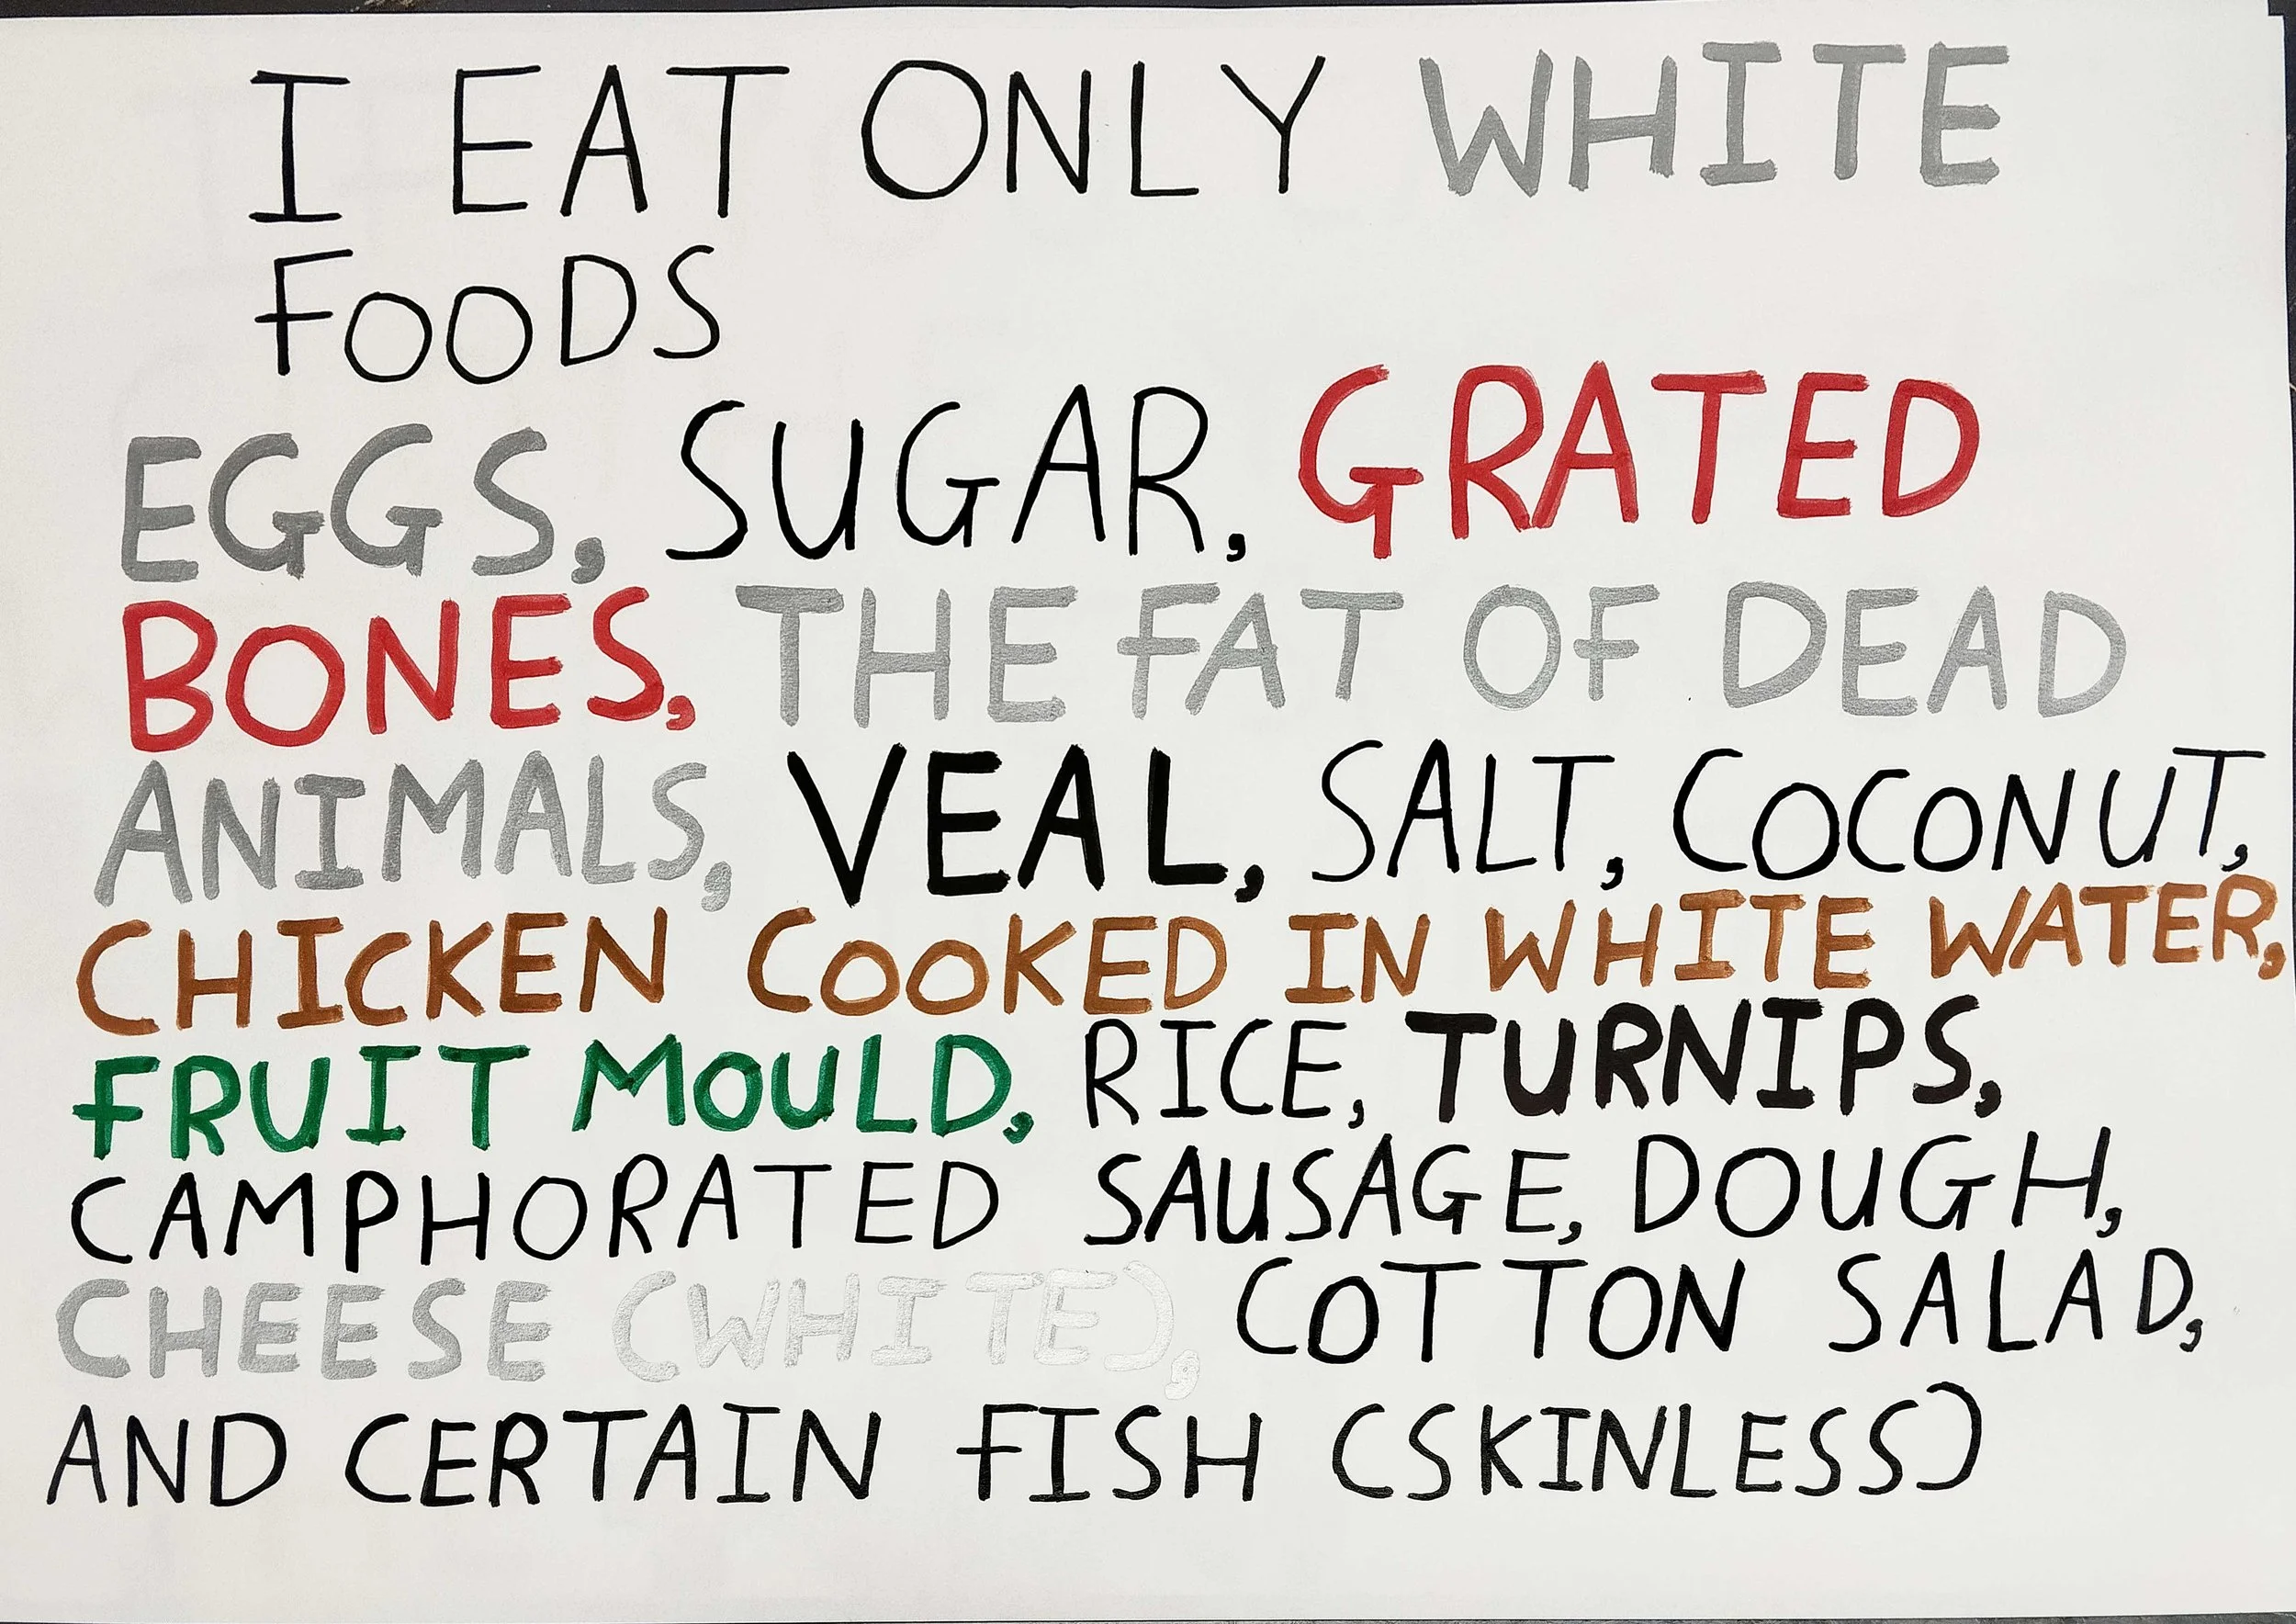 I EAT ONLY WHITE
FOODS
EGGS, SUGAR, GRATED
BONES, THE FAT OF DEAD
ANIMALS, VEAL, SALT, COCONUT,
CHICKEN COOKED IN WHITE WATER,
FRUIT MOULD, RICE, TURNIPS,
CAMPHORATED SAUSAGE, DOUGH,
CHEESE (WHITE), COTTON SALAD,
AND CERTAIN FISH (SKINLESS)